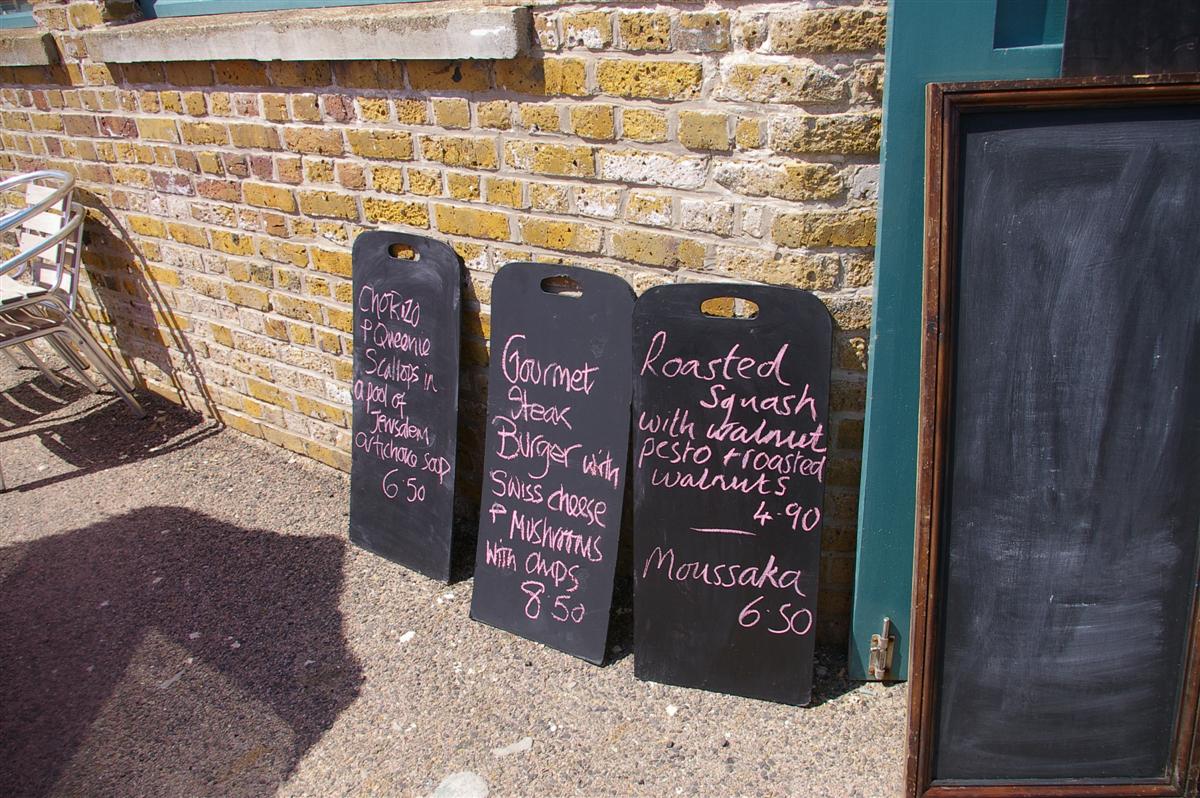 Chorizo
& Queenie
Scallops in
a pool of
Jerusalem
artichoke soup
6.50
Gourmet
Steak
Burger with
Swiss cheese
& Mushrooms
with chips
8.50
Roasted
Squash
with walnut
pesto + roasted
walnuts
4.90
Moussaka
6.50